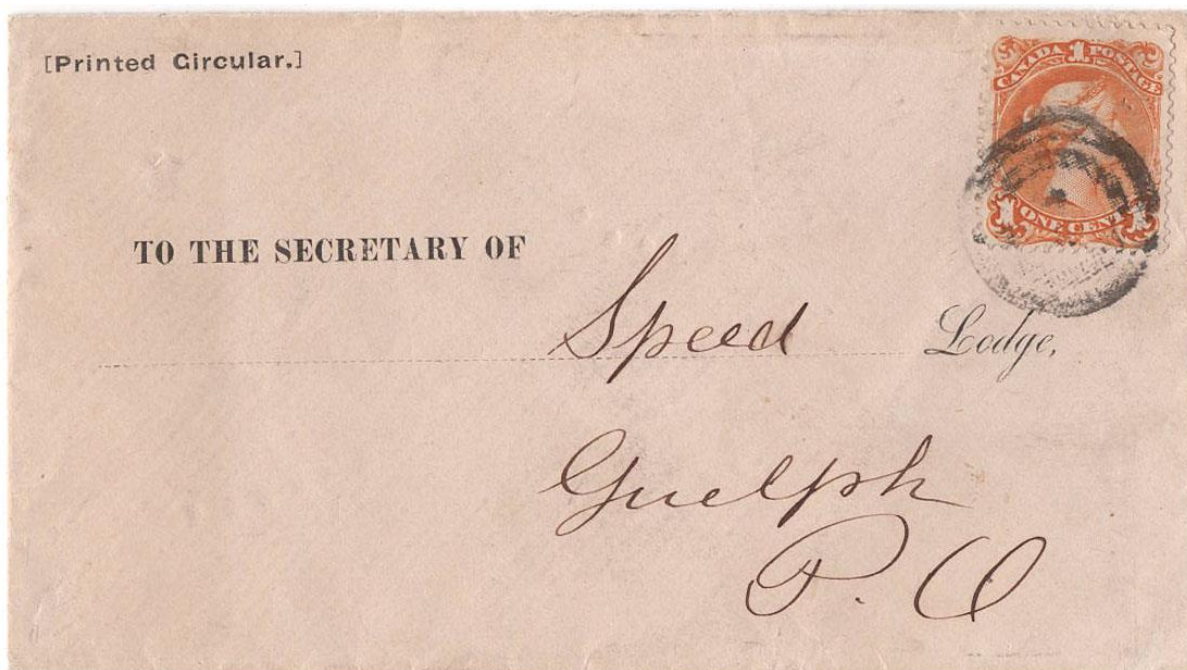 [Printed Circular.]
CANADA 1 POSTAGE
1 ONE CENT 1
TO THE SECRETARY OF
Speed Lodge,
Guelph
P. O